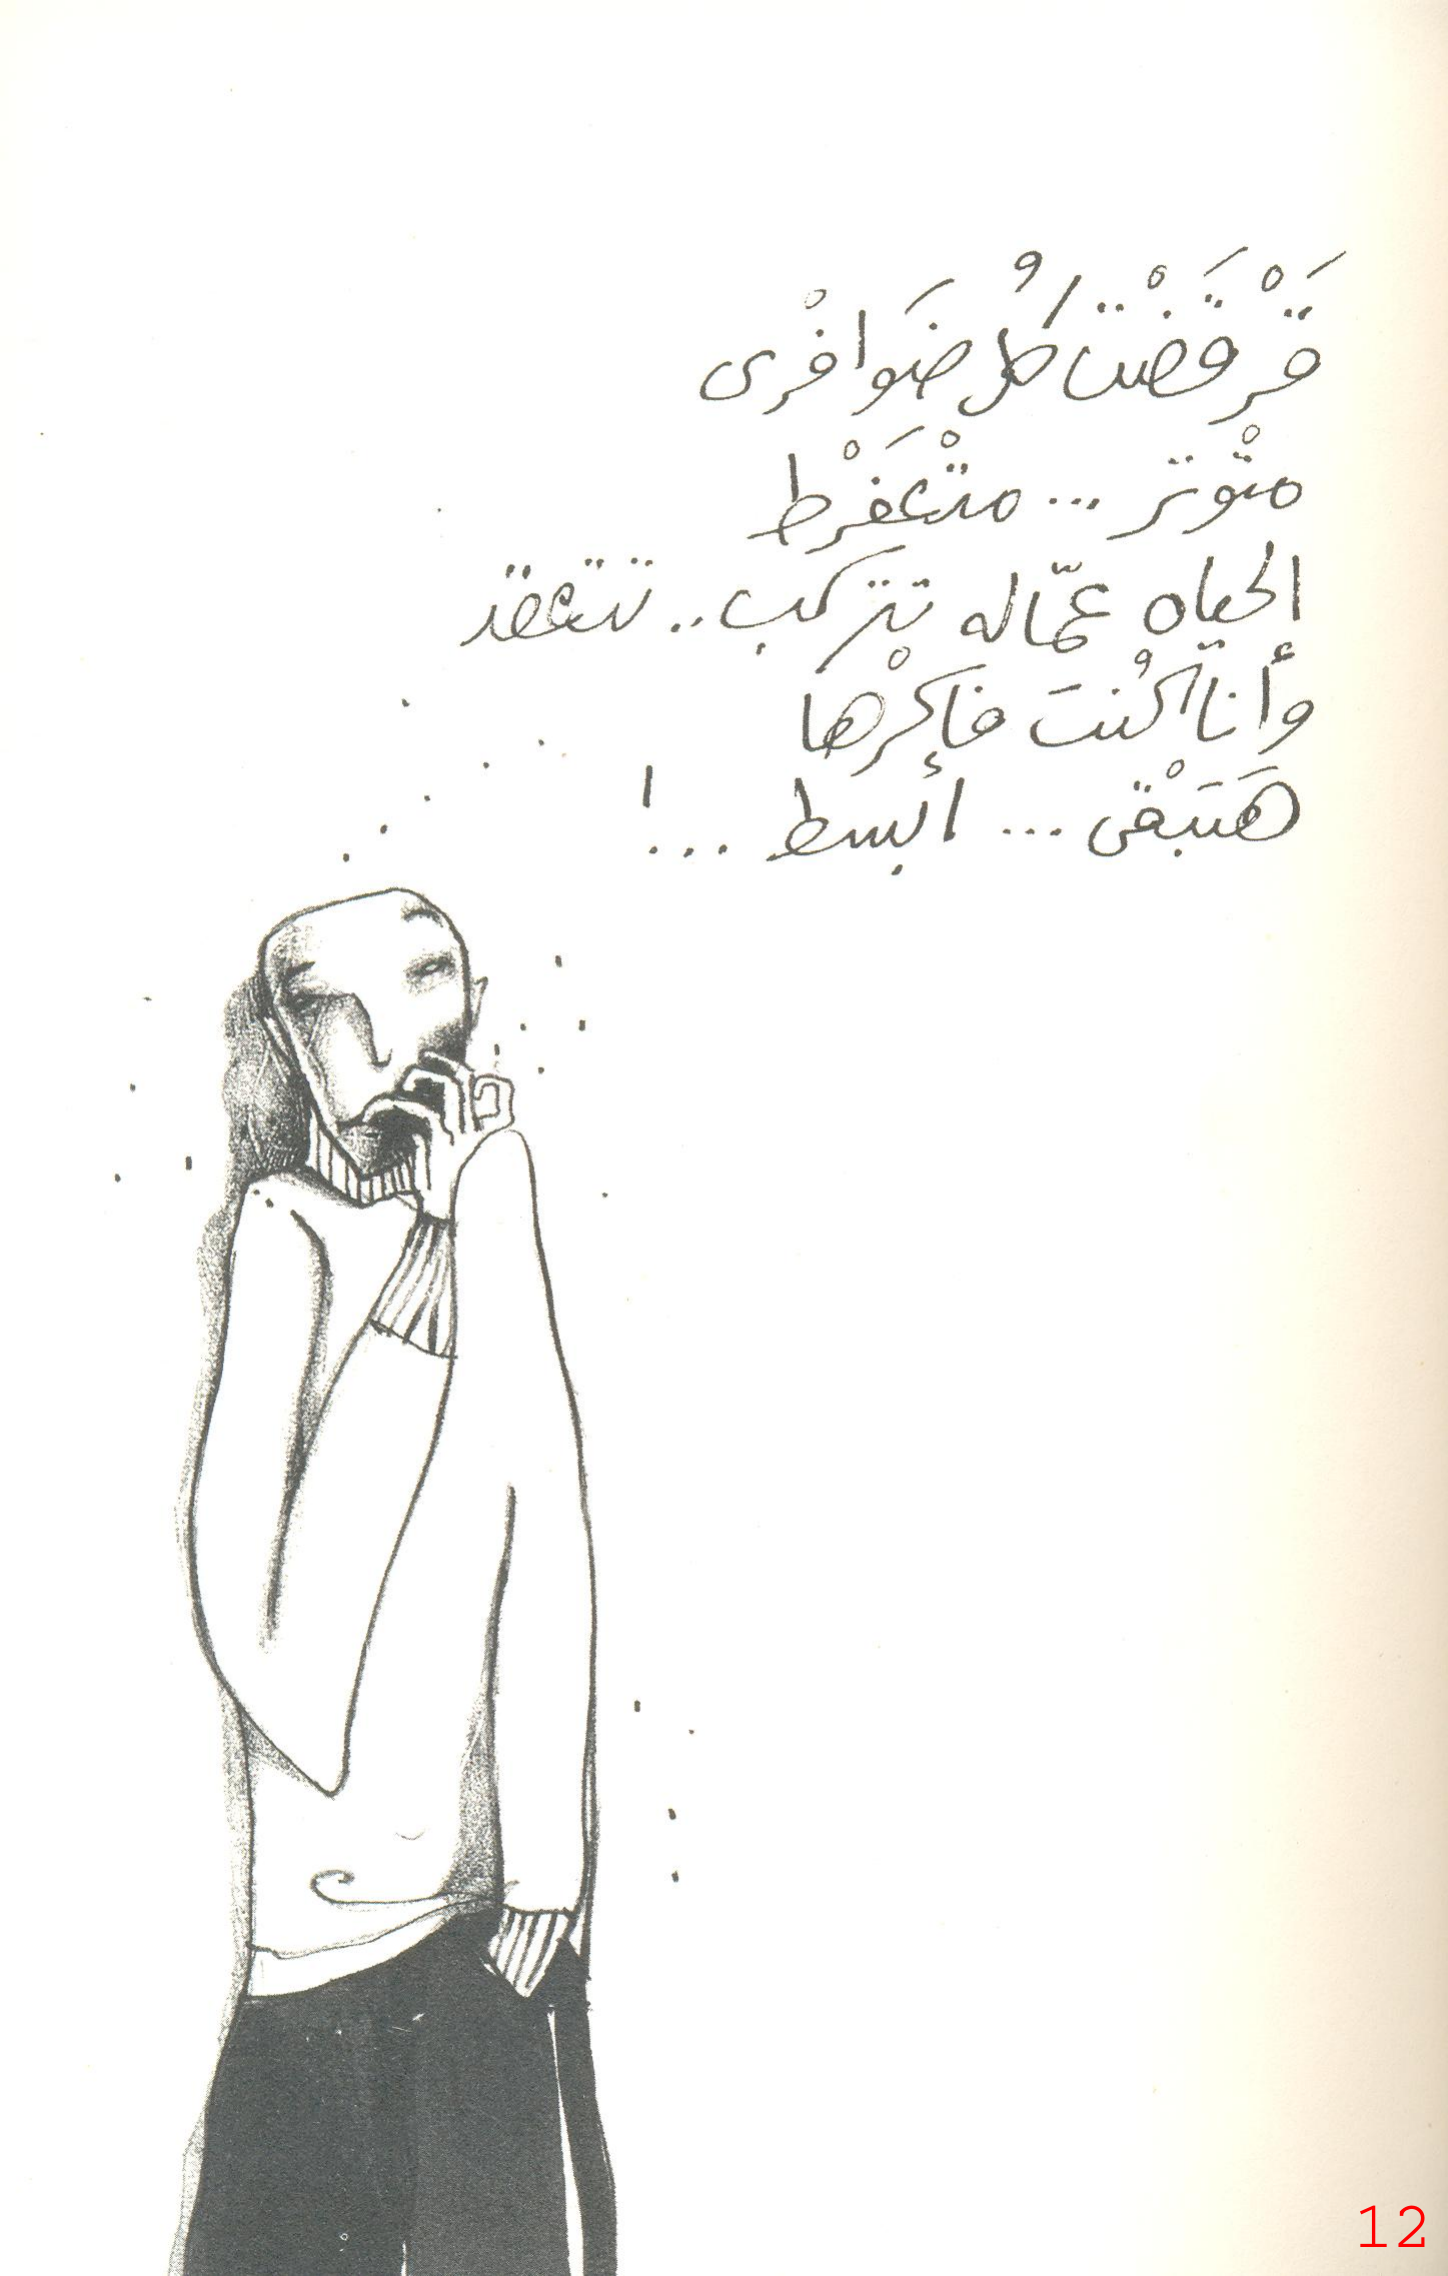 قَرْقَضْت كُل ضَوافْرى
متْوتر ... متْعَفْرَط
الحياه عمّاله تتركب .. تتعقد
وأنا كُنتَ فاكرْها
هَتَبْقى ... أبسط ... !
12